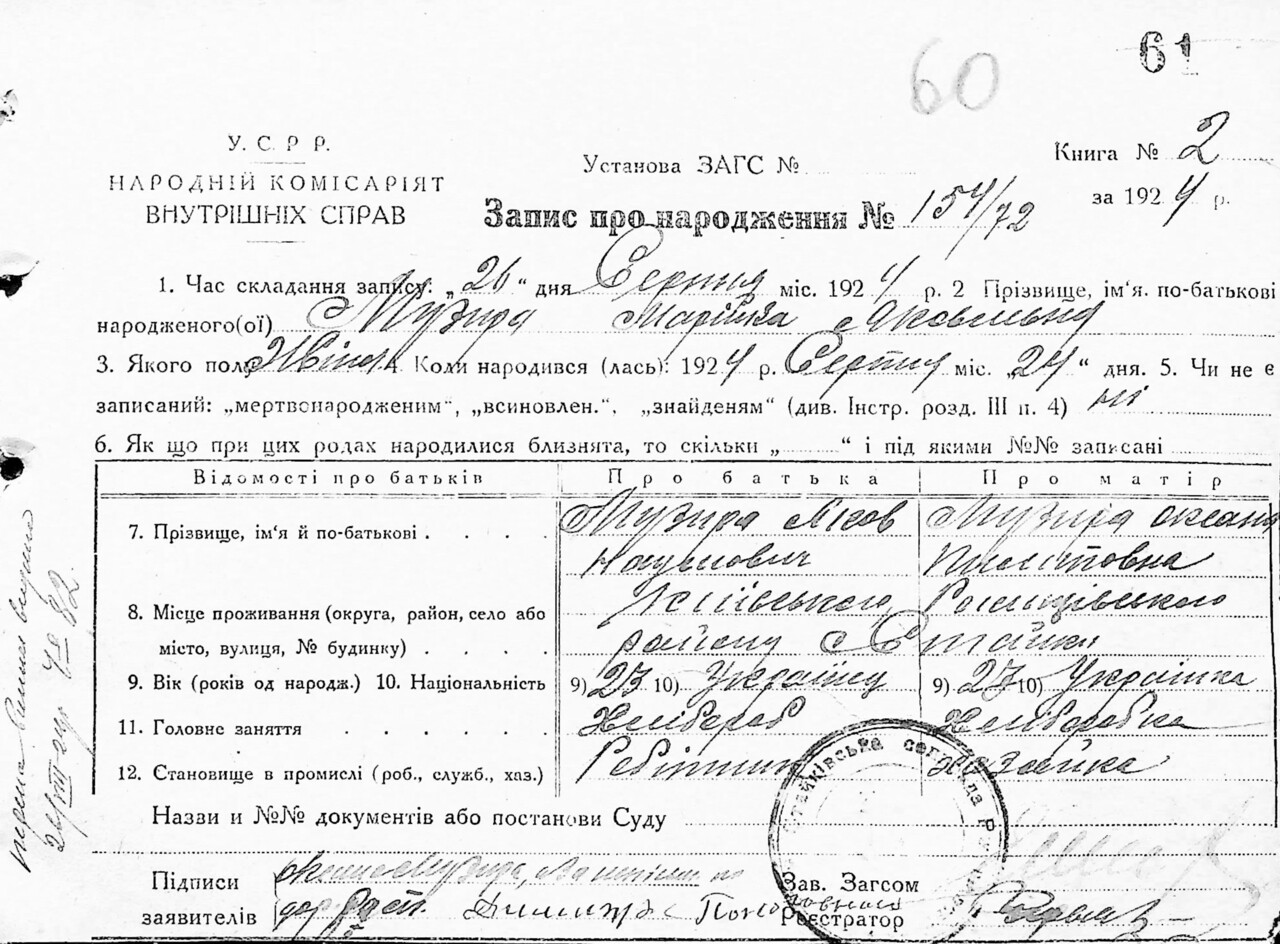 61
60
У. С. Р Р.
НАРОДНІЙ КОМІСАРІЯТ
ВНУТРІШНІХ СПРАВ
Установа ЗАГС №
Книга № 2
за 1924 р.
Запис про народження № 154/72
1. Час складання запису: „26“ дня Серпня міс. 1924 р. 2 Прізвище, ім'я. по-батькові
народженого(ої) Музира Марійка Яковельна
3. Якого полу Жіноч 4 Коли народився (лась): 1924 р. Серпня міс. „24“ дня. 5. Чи не є
записаний: „мертвонародженим“, „всиновлен.“, „знайденям“ (див. Інстр. розд. III п. 4) ні
6. Як що при цих родах народилися близнята, то скільки „ “ і під якими №№ записані
Відомості про батьків Про батька Про матір
7. Прізвище, ім'я й по-батькові Музира Яков Музира Оксана
Наумович Пилатовна
8. Місце проживання (округа, район, село або Київського
місто, вулиця, № будинку) району С Стайки
9. Вік (років од народж.) 10. Національність 9) 23 10) Українец 9) 23 10) Українка
11. Головне заняття Хлібороб Хлібороб­ка
12. Становище в промислі (роб., служб., хаз.) Робітник Хозайка
Назви и №№ документів або постанови Суду
Підписи Музира,
заявителів
Зав. Загсом
Реєстратор